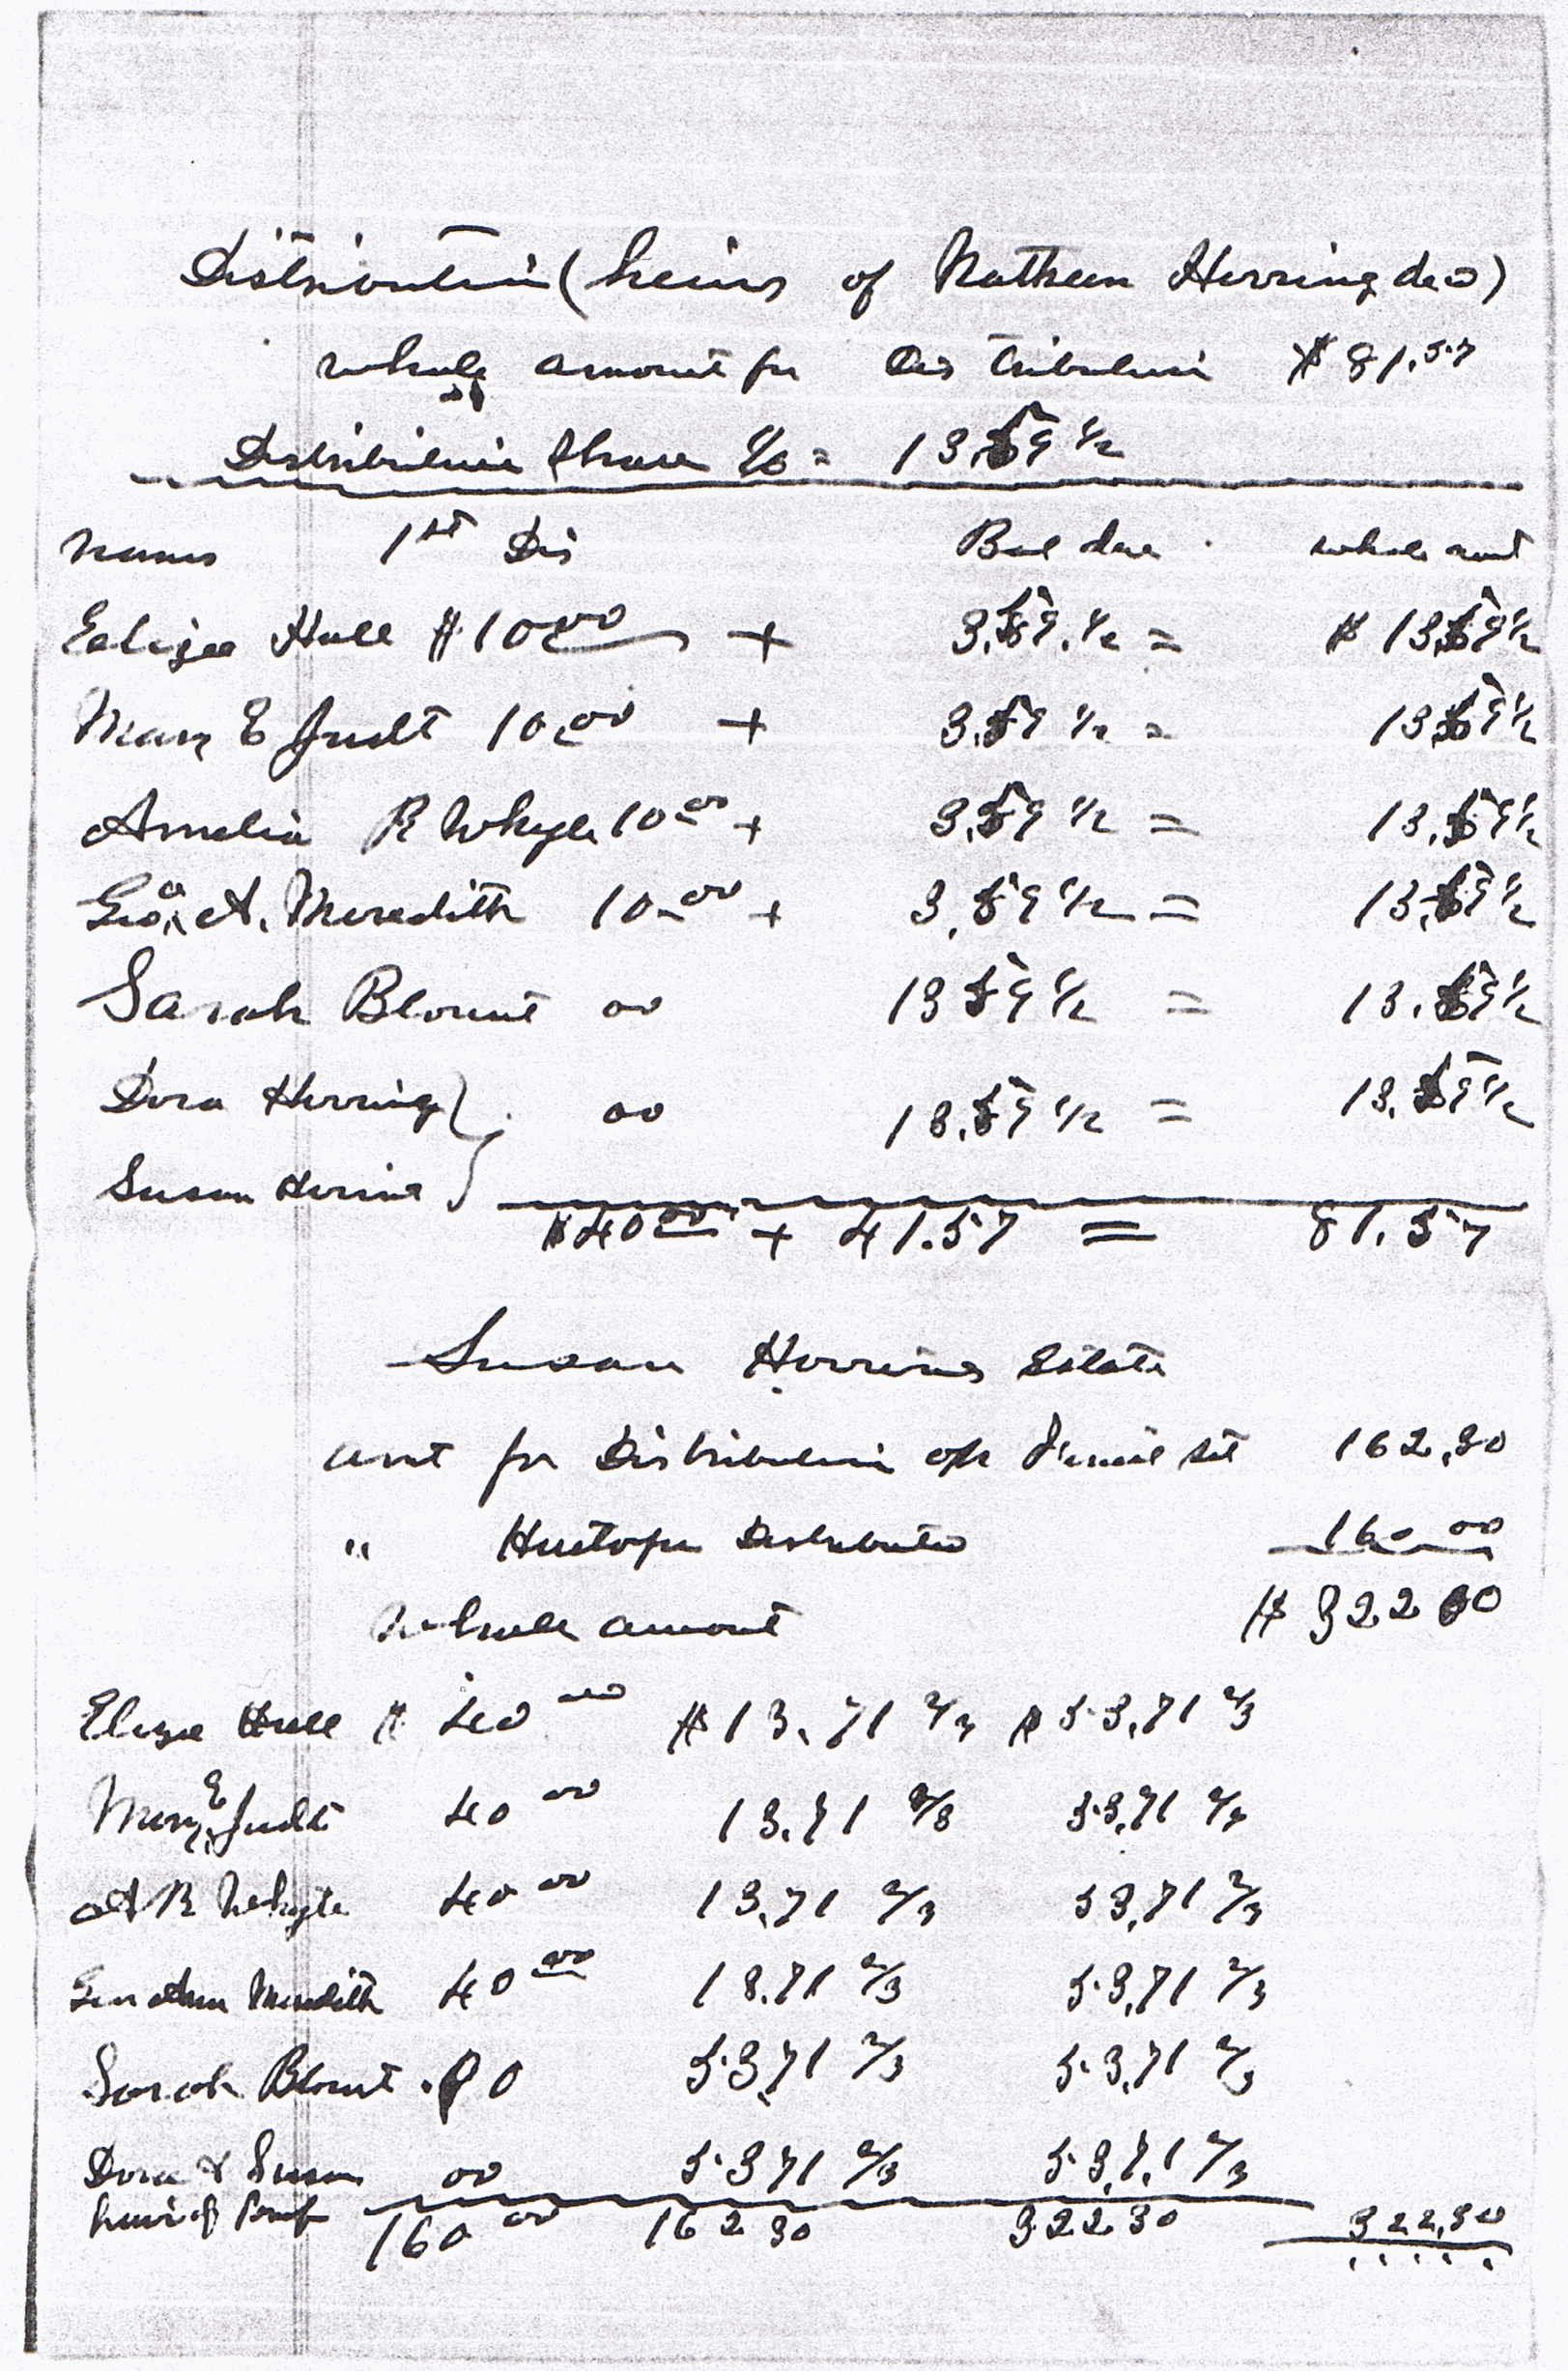 Distribution (heirs of Nathan Herring decd)
whole amount for Distribution $81.57
Distribution Share 1/6 = 13.59 1/2
Names 1st Dis Bal due whole amt
Eeliza Hall $10.00 + 3.59 1/2 = $13.59 1/2
Mary E Judt 10.00 + 3.59 1/2 = 13.59 1/2
Amelia R Whyte 10.00 + 3.59 1/2 = 13.59 1/2
Geo. A. Meredith 10.00 + 3.59 1/2 = 13.59 1/2
Sarah Blount 00 13 59 1/2 = 13.59 1/2
Dora Herring } 00 13.59 1/2 = 13.59 1/2
Susan Herring }
$40.00 + 41.57 = 81.57
Susan Herring Estate
amt for Distribution 162.30
" Heretofore Distributed 160.00
Whole amount $322 30
Eliza Hall $ 40 00 $13.71 2/3 $53.71 2/3
Mary E Judt 40 00 13.71 2/3 53.71 2/3
A R Whyte 40 00 13.71 2/3 53.71 2/3
Geo Ann Meredith 40 00 13.71 2/3 53.71 2/3
Sarah Blount .00 53.71 2/3 53.71 2/3
Dora & Susan 00 53 71 2/3 53.71 2/3
heirs of
160 00 162 30 322 30 322.30